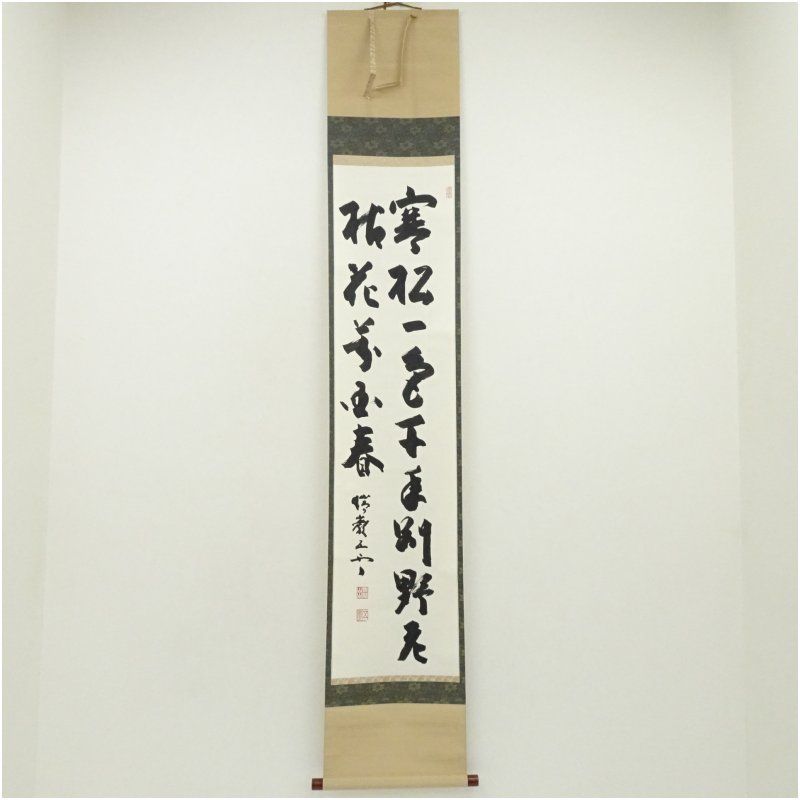 寒松一色千年別野老
拈花萬国春